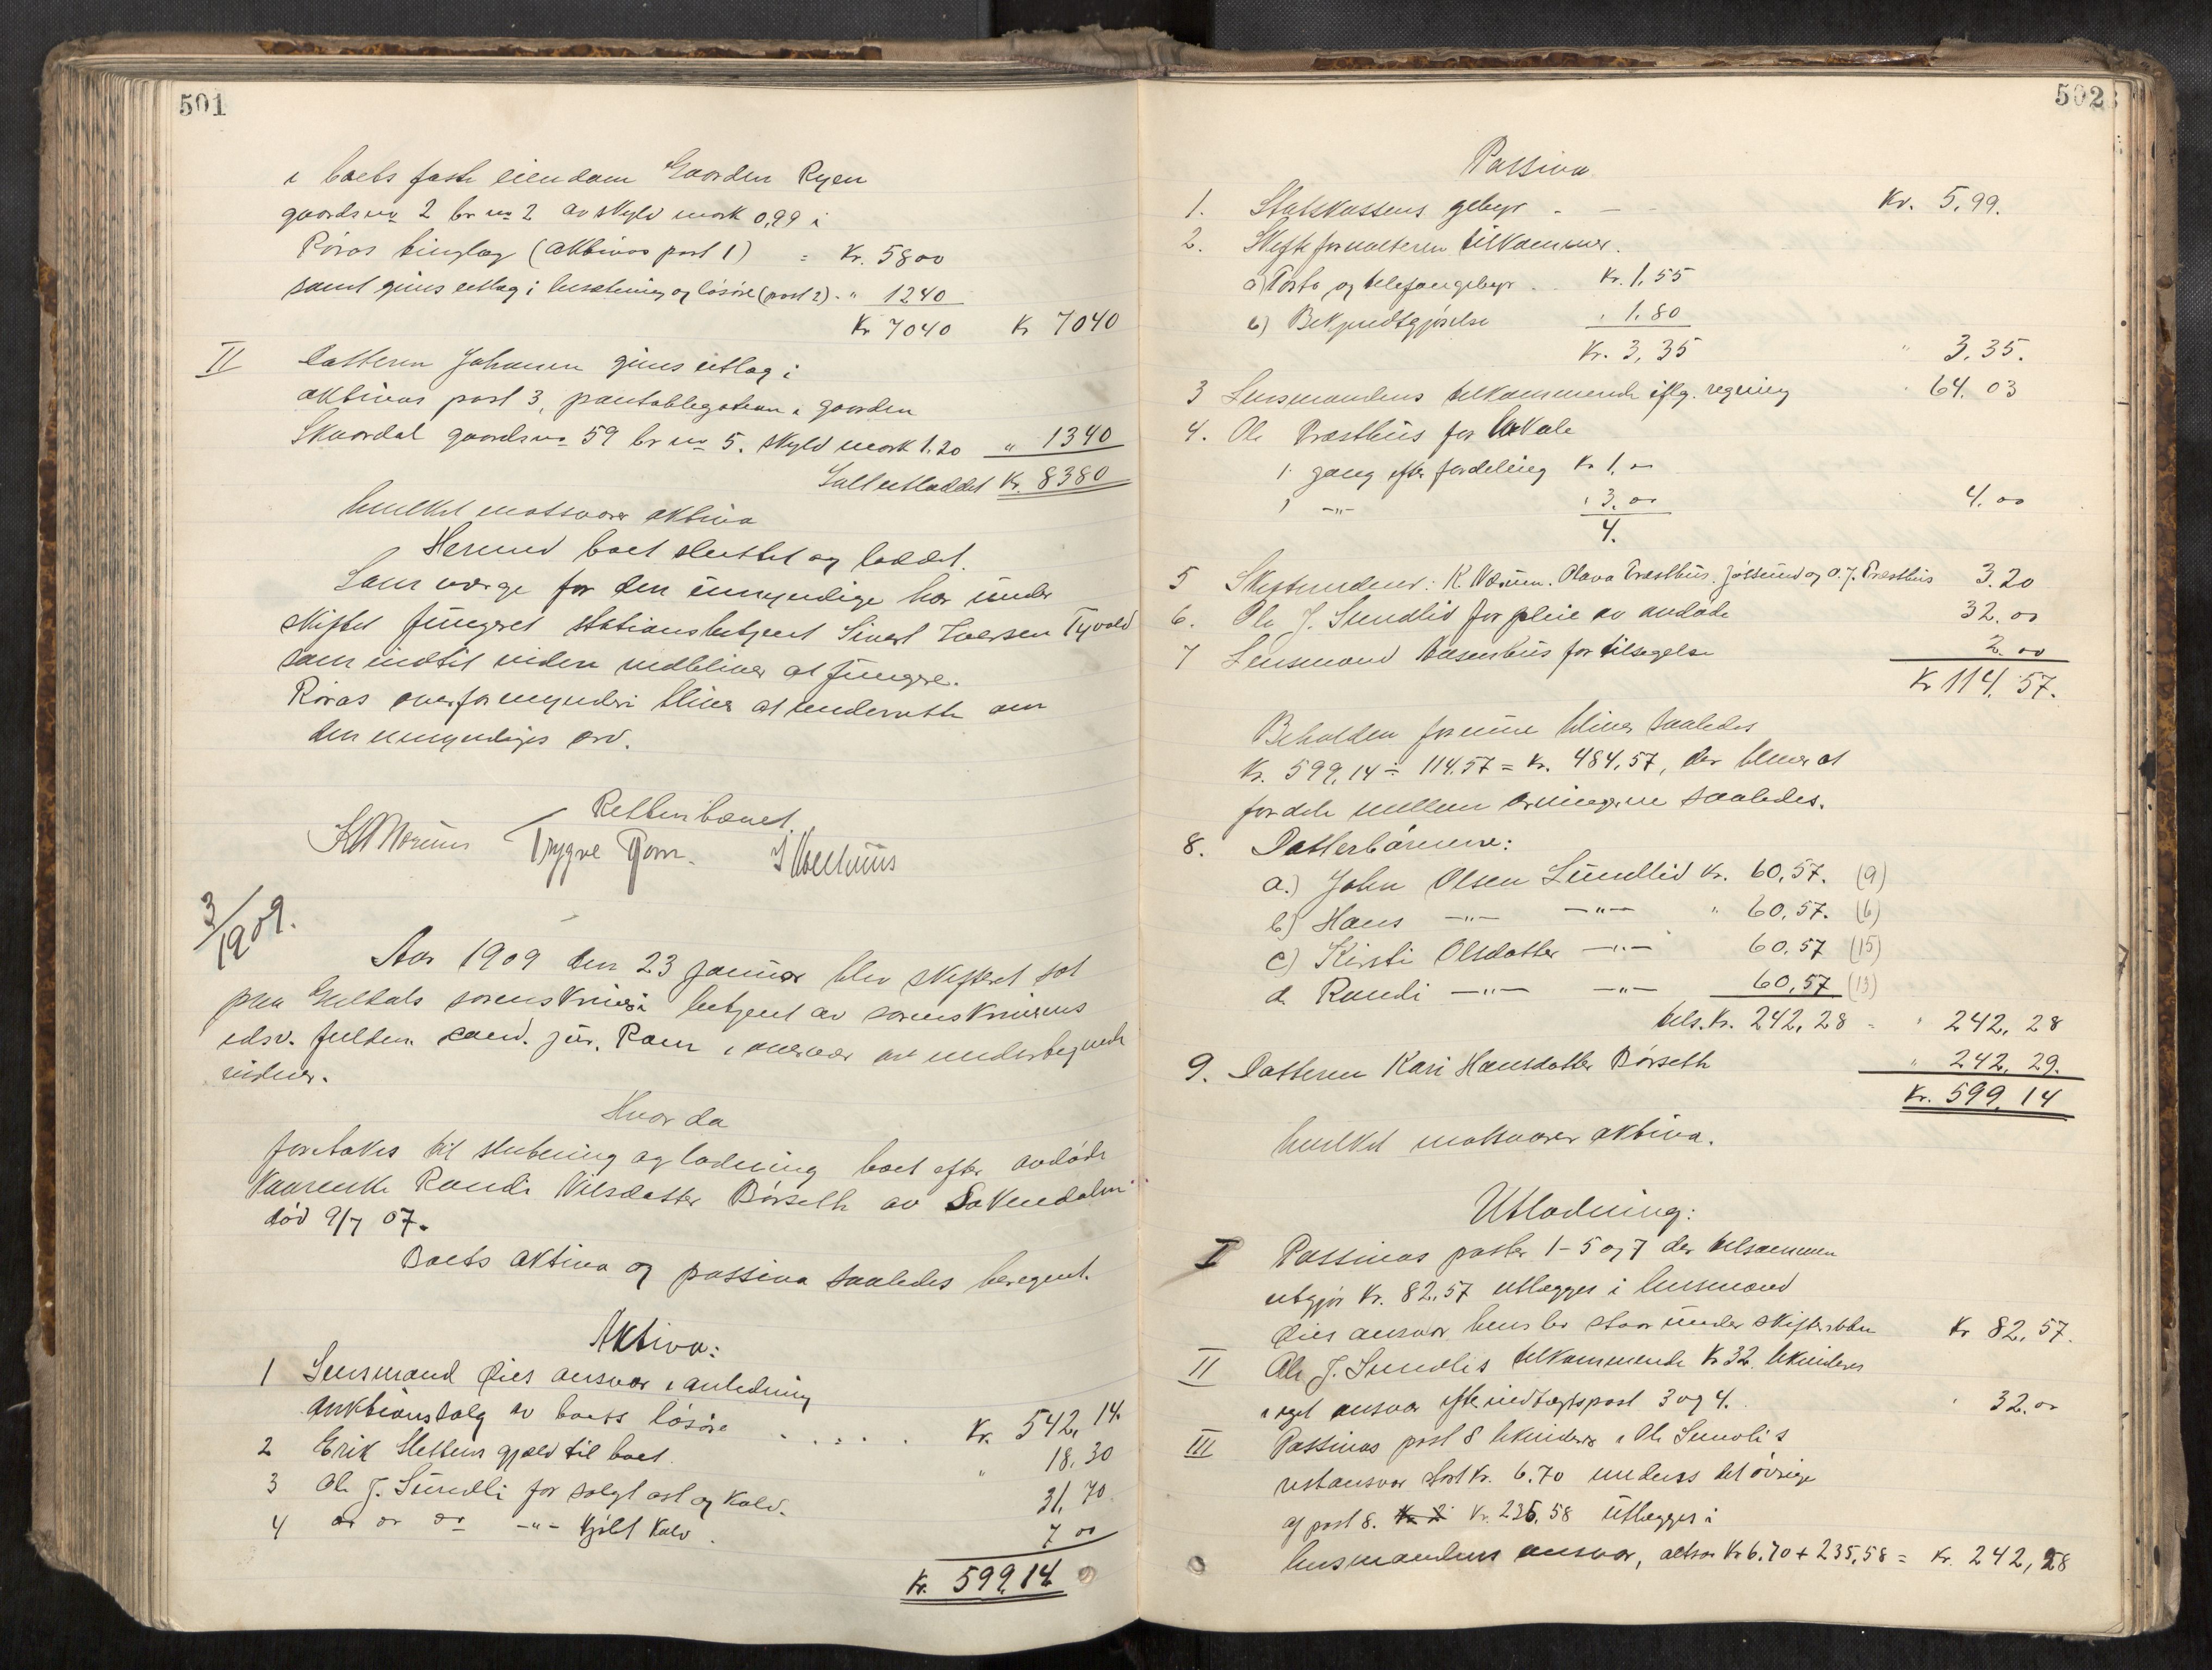 501
i boets faste eiendom Gaarden Ryen
gaardsno 2 br no 2 av skyld mark 0,99 i
Röros tinglag (aktivas post 1) = Kr. 5800
samt gives utlæg i besætning og lösöre (post 2) - " 1240
Kr 7040 Kr 7040
II Datteren Johanna gives utlæg i
aktivas post 3, pantobligation i gaarden
Skaardal gaardsno 59 br no 5. skyld mark 1.20 " 1340
Ialt utloddet Kr. 8380
hvilket motsvarer aktiva
Hermed boet sluttet og loddet.
Som værge for den umyndige har under
skiftet fungeret stationsbetjent Sivert Iversen Tyvold
som indtil videre vedbliver at fungere.
Röros overformynderi bliver at underrette om
den umyndiges arv.
Retten hævet.
Trygve Rom.
3/1909.
Aar 1909 den 23 januar blev skifteret sat
paa Guldals sorenskriveri betjent av sorenskriverens
edsv. fuldm. cand. jur. Rom i overvær av undertegnede
vidner.
Hvor da
foretokes til slutning og lodning boet efter avdöde
Kaarenke Randi Nilsdatter Börseth av Soknedalen
död 9/7 07.
Boets aktiva og passiva saaledes beregnet.
Aktiva:
1 Lensmand Öies ansvar i anledning
auktionssalg av boets lösöre . . . . . Kr. 542,14.
2 Erik Slettens gjæld til boet. " 18.30
3 Ole J. Sundli for solgt ost og kalv. 31,70
4 do do do -"- kjöbt kalv. 7 00
Kr. 599,14
502
Passiva
1. Statskassens gebyr - — Kr. 5,99.
2. Skifteforvalteren tilkommer.
a) Porto og telefongebyr . . Kr. 1,55
b) Bekjendtgjörelse " 1.80
Kr. 3,35 " 3,35.
3 Lensmandens tilkommende iflg. regning " 64,03
4. Ole Præsthus for lokale
1 gang efter fordeling Kr 1,00
1 -"- " 3.00 4.00
4.
5 Skiftevidner: K. Værum. Olava Præsthus. Jölsund og O. J. Præsthus 3.20
6. Ole J. Sundlid for pleie av avdöde 32.00
7 Lensmand Aasenhus for tilsigelse 2.00
Kr 114,57.
Beholden formue bliver saaledes
Kr. 599,14 ÷ 114.57 = Kr. 484,57, der bliver at
fordele mellem arvingerne saaledes.
8. Datterbörnene:
a.) John Olsen Sundlid Kr. 60,57. (9)
b) Hans -"- -"- " 60,57. (6)
c) Kirsti Olsdatter -"- 60,57 (15)
d. Randi -"- -"- 60,57 (13)
tils. Kr. 242,28 = " 242,28
9. Datteren Kari Hansdatter Börseth " 242,29.
Kr. 599,14
hvilket motsvarer aktiva.
Utlodning:
I Passivas poster 1-5 og 7 der tilsammen
utgjör Kr. 82,57 utlægges i lensmand
Öies ansvar hvis lov staar under skifteretten Kr 82,57.
II Ole J. Sundlis tilkommende Kr 32. likvideres
i eget ansvar efter indtægtspost 3 og 4. " 32.00
III Passivas post 8 likvideres i Ole Sundlis
restansvar stort Kr. 6.70 medens det övrige
af post 8. Kr. 235,58 utlægges i
lensmandens ansvar, altsaa Kr 6.70 + 235,58 = Kr. 242,28